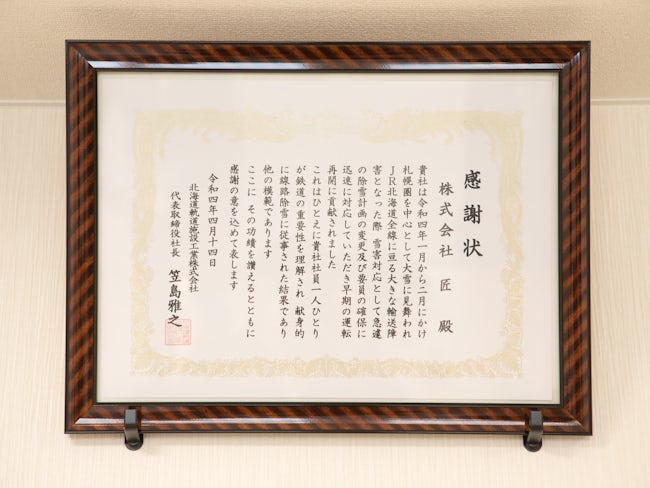 感謝状
株式会社 匠 殿
貴社は令和四年一月から二月にかけ
札幌圏を中心として大雪に見舞われ
JR北海道全線に亘る大きな輸送障
害となった際 雪害対応として急遽
の除雪計画の変更及び要員の確保に
迅速に対応していただき早期の運転
再開に貢献されました
これはひとえに貴社社員一人ひとり
が鉄道の重要性を理解され 献身的
に線路除雪に従事された結果であり
他の模範であります
ここに その功績を讃えるとともに
感謝の意を込めて表します
令和四年四月十四日
北海道軌道施設工業株式会社
代表取締役社長 笠島雅之